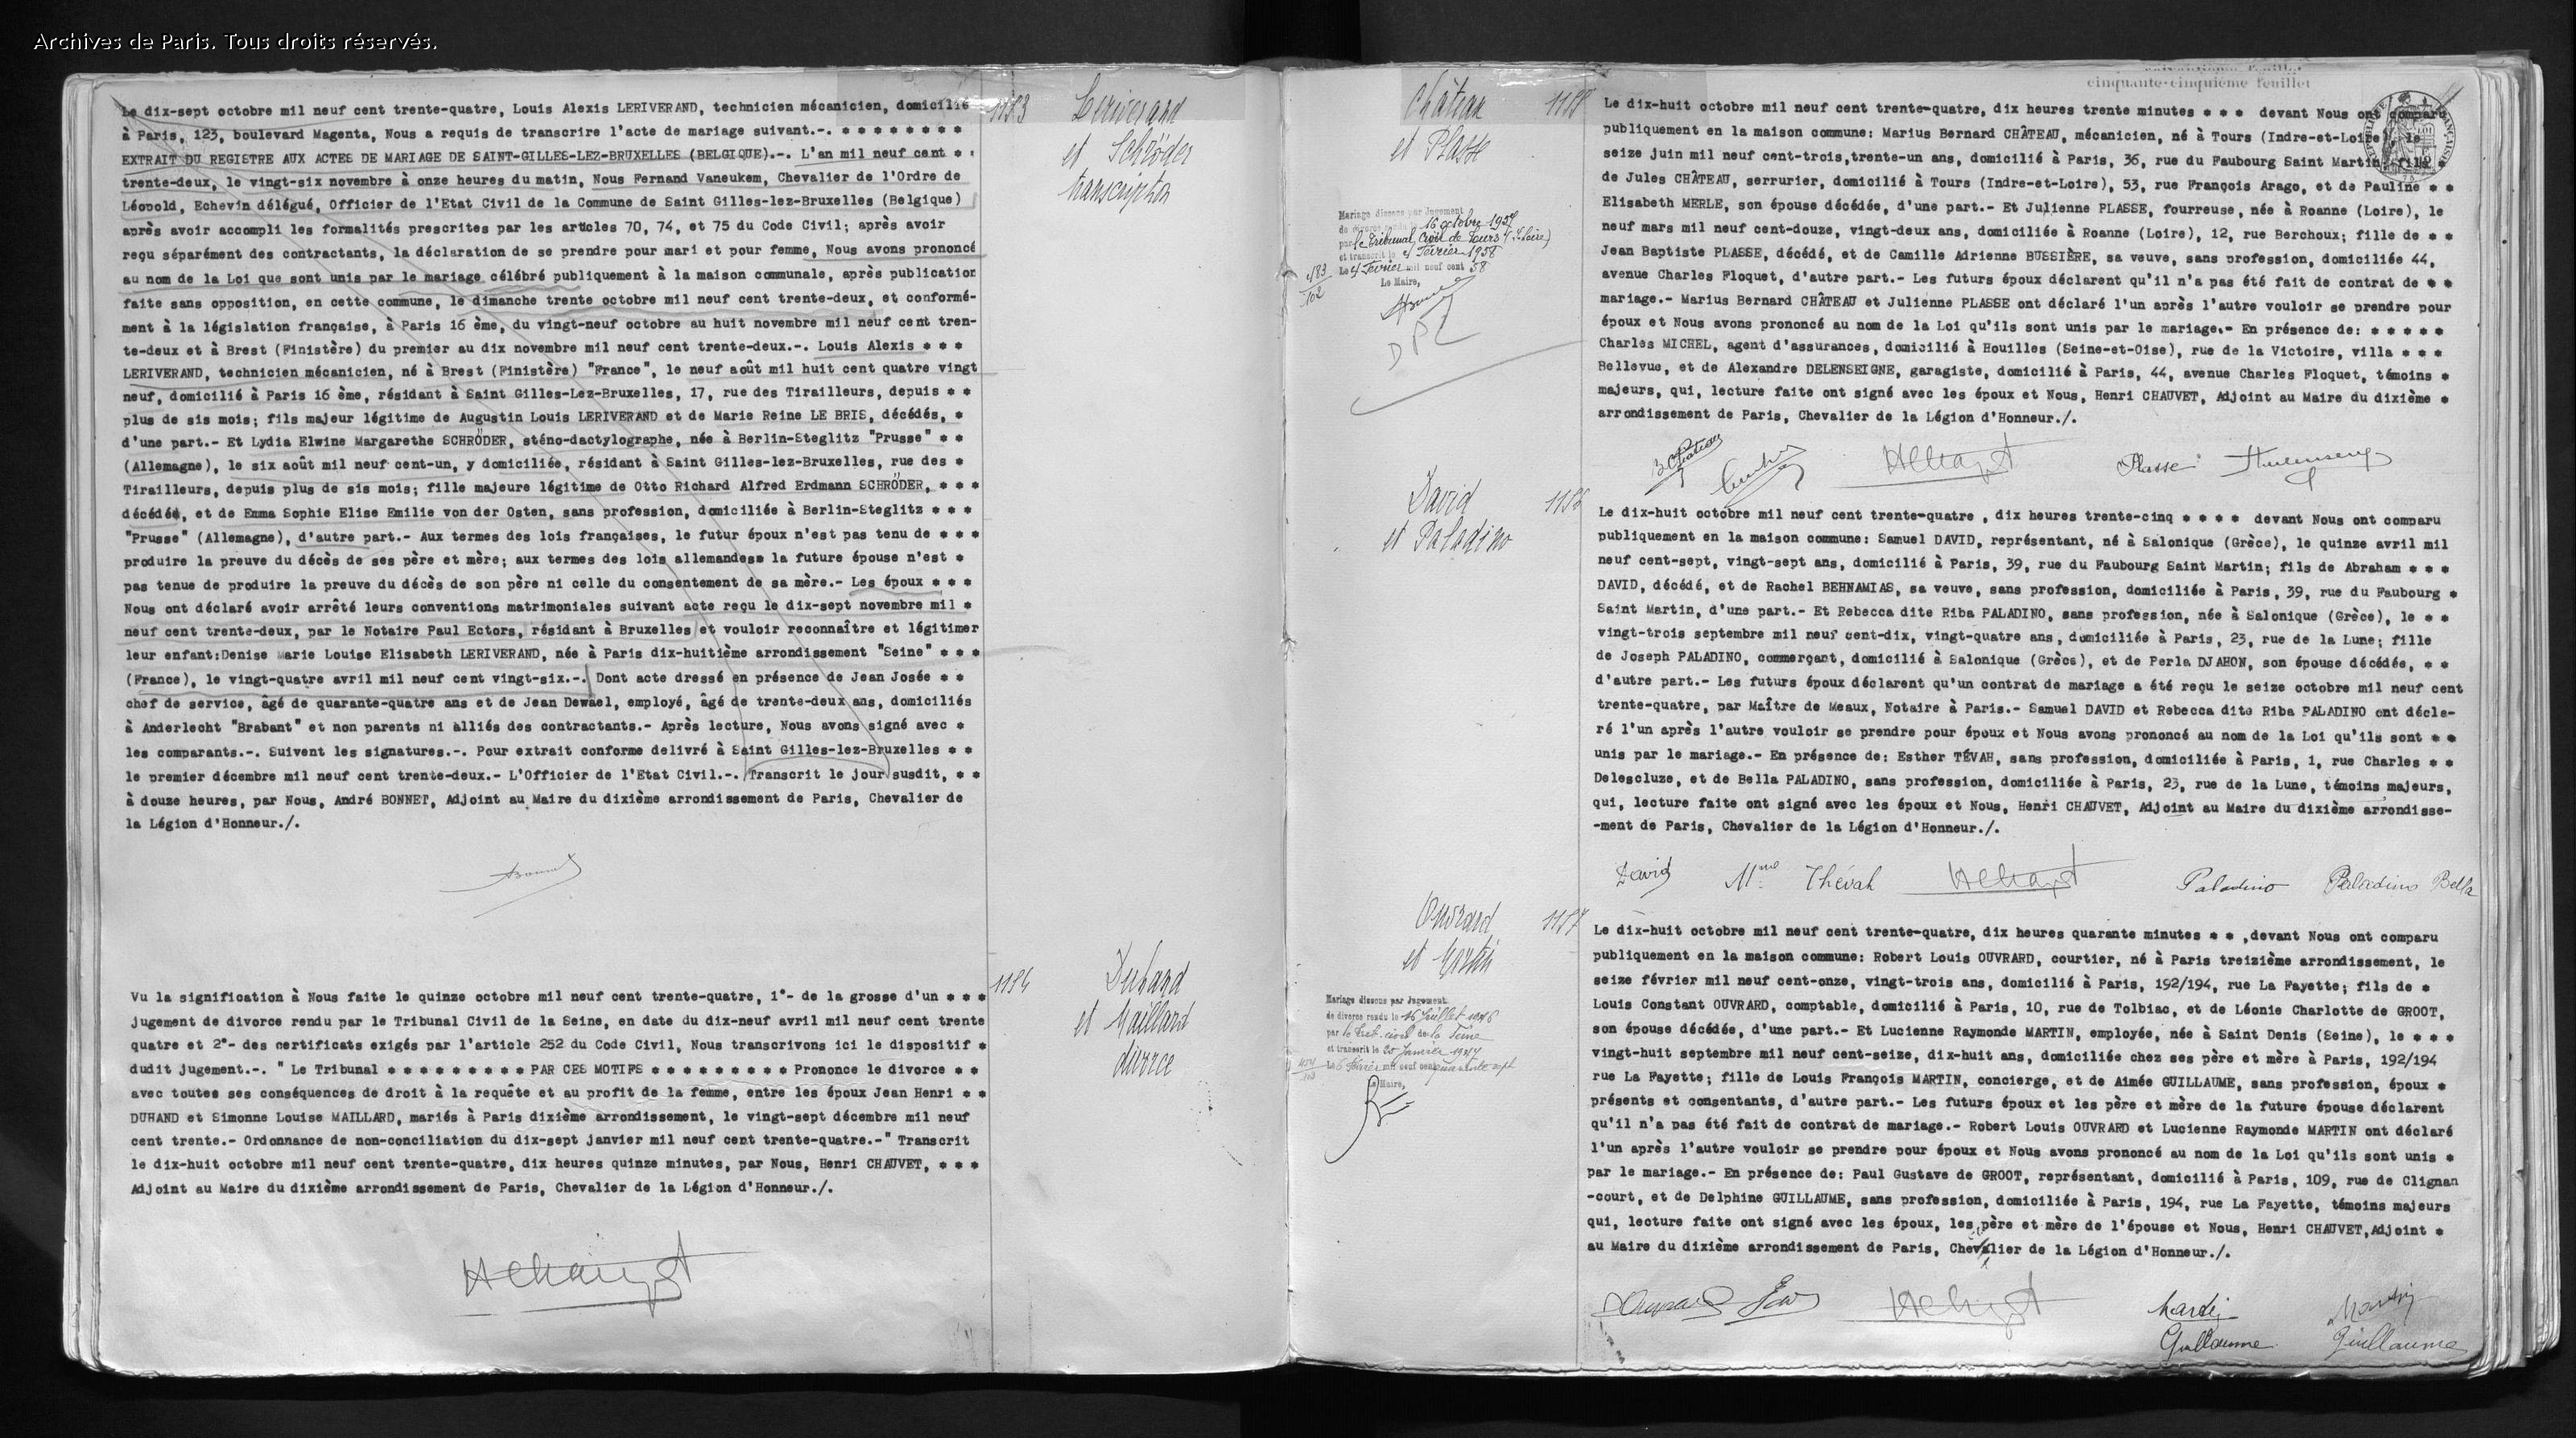 Archives de Paris. Tous droits réservés.
Le dix-sept octobre mil neuf cent trente-quatre, Louis Alexis LERIVERAND, technicien mécanicien, domicilié
à Paris, 123, boulevard Magenta, Nous a requis de transcrire l'acte de mariage suivant.-. * * * * * * * *
EXTRAIT DU REGISTRE AUX ACTES DE MARIAGE DE SAINT-GILLES-LEZ-BRUXELLES (BELGIQUE).-. L'an mil neuf cent *
trente-deux, le vingt-six novembre à onze heures du matin, Nous Fernand Vaneukem, Chevalier de l'Ordre de
Léopold, Echevin délégué, Officier de l'Etat Civil de la Commune de Saint Gilles-lez-Bruxelles (Belgique)
après avoir accompli les formalités prescrites par les articles 70, 74, et 75 du Code Civil; après avoir
reçu séparément des contractants, la déclaration de se prendre pour mari et pour femme, Nous avons prononcé
au nom de la Loi que sont unis par le mariage célébré publiquement à la maison communale, après publication
faite sans opposition, en cette commune, le dimanche trente octobre mil neuf cent trente-deux, et conformé-
ment à la législation française, à Paris 16 ème, du vingt-neuf octobre au huit novembre mil neuf cent tren-
te-deux et à Brest (Finistère) du premier au dix novembre mil neuf cent trente-deux.-. Louis Alexis * * *
LERIVERAND, technicien mécanicien, né à Brest (Finistère) "France", le neuf août mil huit cent quatre vingt
neuf, domicilié à Paris 16 ème, résidant à Saint Gilles-Lez-Bruxelles, 17, rue des Tirailleurs, depuis * *
plus de sis mois; fils majeur légitime de Augustin Louis LERIVERAND et de Marie Reine LE BRIS, décédés, *
d'une part.- Et Lydia Elwine Margarethe SCHRÖDER, sténo-dactylographe, née à Berlin-Steglitz "Prusse" * *
(Allemagne), le six août mil neuf cent-un, y domiciliée, résidant à Saint Gilles-lez-Bruxelles, rue des *
Tirailleurs, depuis plus de sis mois; fille majeure légitime de Otto Richard Alfred Erdmann SCHRÖDER, * * *
décédé, et de Emma Sophie Elise Emilie von der Osten, sans profession, domiciliée à Berlin-Steglitz * * *
"Prusse" (Allemagne), d'autre part.- Aux termes des lois françaises, le futur époux n'est pas tenu de * * *
produire la preuve du décès de ses père et mère; aux termes des lois allemandes la future épouse n'est *
pas tenue de produire la preuve du décès de son père ni celle du consentement de sa mère.- Les époux * * *
Nous ont déclaré avoir arrêté leurs conventions matrimoniales suivant acte reçu le dix-sept novembre mil *
neuf cent trente-deux, par le Notaire Paul Ectors, résidant à Bruxelles et vouloir reconnaître et légitimer
leur enfant:Denise Marie Louise Elisabeth LERIVERAND, née à Paris dix-huitième arrondissement "Seine" * * *
(France), le vingt-quatre avril mil neuf cent vingt-six.-. Dont acte dressé en présence de Jean Josée * *
chef de service, âgé de quarante-quatre ans et de Jean Dewael, employé, âgé de trente-deux ans, domiciliés
à Anderlecht "Brabant" et non parents ni alliés des contractants.- Après lecture, Nous avons signé avec *
les comparants.-. Suivent les signatures.-. Pour extrait conforme delivré à Saint Gilles-lez-Bruxelles * *
le premier décembre mil neuf cent trente-deux.- L'Officier de l'Etat Civil.-. Transcrit le jour susdit, * *
à douze heures, par Nous, André BONNET, Adjoint au Maire du dixième arrondissement de Paris, Chevalier de
la Légion d'Honneur./.
1193
Leriverand
et Schröder
transcription
Vu la signification à Nous faite le quinze octobre mil neuf cent trente-quatre, 1°- de la grosse d'un * * *
jugement de divorce rendu par le Tribunal Civil de la Seine, en date du dix-neuf avril mil neuf cent trente
quatre et 2°- des certificats exigés par l'article 252 du Code Civil, Nous transcrivons ici le dispositif *
dudit jugement.-. " Le Tribunal * * * * * * * * * PAR CES MOTIFS * * * * * * * * * Prononce le divorce * *
avec toutes ses conséquences de droit à la requête et au profit de la femme, entre les époux Jean Henri * *
DUHAND et Simonne Louise MAILLARD, mariés à Paris dixième arrondissement, le vingt-sept décembre mil neuf
cent trente.- Ordonnance de non-conciliation du dix-sept janvier mil neuf cent trente-quatre.-" Transcrit
le dix-huit octobre mil neuf cent trente-quatre, dix heures quinze minutes, par Nous, Henri CHAUVET, * * *
Adjoint au Maire du dixième arrondissement de Paris, Chevalier de la Légion d'Honneur./.
1194
Duhand
et Maillard
divorce
cinquante-cinquième feuillet
Château
et Plasse
1195
Mariage dissous par Jugement
16 octobre 1957
par le Tribunal Civil de Tours
et transcrit le 4 Février 1958
Le 4 Février mil neuf cent 58
Le Maire,
Le dix-huit octobre mil neuf cent trente-quatre, dix heures trente minutes * * * devant Nous ont comparu
publiquement en la maison commune: Marius Bernard CHÂTEAU, mécanicien, né à Tours (Indre-et-Loire), le
seize juin mil neuf cent-trois,trente-un ans, domicilié à Paris, 36, rue du Faubourg Saint Martin; fils *
de Jules CHÂTEAU, serrurier, domicilié à Tours (Indre-et-Loire), 53, rue François Arago, et de Pauline * *
Elisabeth MERLE, son épouse décédée, d'une part.- Et Julienne PLASSE, fourreuse, née à Roanne (Loire), le
neuf mars mil neuf cent-douze, vingt-deux ans, domiciliée à Roanne (Loire), 12, rue Berchoux; fille de * *
Jean Baptiste PLASSE, décédé, et de Camille Adrienne BUSSIÈRE, sa veuve, sans profession, domiciliée 44,
avenue Charles Floquet, d'autre part.- Les futurs époux déclarent qu'il n'a pas été fait de contrat de * *
mariage.- Marius Bernard CHÂTEAU et Julienne PLASSE ont déclaré l'un après l'autre vouloir se prendre pour
époux et Nous avons prononcé au nom de la Loi qu'ils sont unis par le mariage.- En présence de: * * * * *
Charles MICHEL, agent d'assurances, domicilié à Houilles (Seine-et-Oise), rue de la Victoire, villa * * *
Bellevue, et de Alexandre DELENSEIGNE, garagiste, domicilié à Paris, 44, avenue Charles Floquet, témoins *
majeurs, qui, lecture faite ont signé avec les époux et Nous, Henri CHAUVET, Adjoint au Maire du dixième *
arrondissement de Paris, Chevalier de la Légion d'Honneur./.
Plasse
David
et Paladino
1196
Le dix-huit octobre mil neuf cent trente-quatre , dix heures trente-cinq * * * * devant Nous ont comparu
publiquement en la maison commune: Samuel DAVID, représentant, né à Salonique (Grèce), le quinze avril mil
neuf cent-sept, vingt-sept ans, domicilié à Paris, 39, rue du Faubourg Saint Martin; fils de Abraham * * *
DAVID, décédé, et de Rachel BEHNAMIAS, sa veuve, sans profession, domiciliée à Paris, 39, rue du Faubourg *
Saint Martin, d'une part.- Et Rebecca dite Riba PALADINO, sans profession, née à Salonique (Grèce), le * *
vingt-trois septembre mil neuf cent-dix, vingt-quatre ans, domiciliée à Paris, 23, rue de la Lune; fille
de Joseph PALADINO, commerçant, domicilié à Salonique (Grèce), et de Perla DJAHON, son épouse décédée, * *
d'autre part.- Les futurs époux déclarent qu'un contrat de mariage a été reçu le seize octobre mil neuf cent
trente-quatre, par Maître de Meaux, Notaire à Paris.- Samuel DAVID et Rebecca dite Riba PALADINO ont décla-
ré l'un après l'autre vouloir se prendre pour époux et Nous avons prononcé au nom de la Loi qu'ils sont * *
unis par le mariage.- En présence de: Esther TÉVAH, sans profession, domiciliée à Paris, 1, rue Charles * *
Delescluze, et de Bella PALADINO, sans profession, domiciliée à Paris, 23, rue de la Lune, témoins majeurs,
qui, lecture faite ont signé avec les époux et Nous, Henri CHAUVET, Adjoint au Maire du dixième arrondisse-
-ment de Paris, Chevalier de la Légion d'Honneur./.
David Mme Thévah Paladino Paladino Bella
Ouvrard
et Martin
1197
Mariage dissous par Jugement
de divorce rendu le 16 Juillet 1946
par le Trib. civil de la Seine
et transcrit le 20 Janvier 1947
Le 6 Février mil neuf cent quarante sept
Le Maire,
Le dix-huit octobre mil neuf cent trente-quatre, dix heures quarante minutes * * ,devant Nous ont comparu
publiquement en la maison commune: Robert Louis OUVRARD, courtier, né à Paris treizième arrondissement, le
seize février mil neuf cent-onze, vingt-trois ans, domicilié à Paris, 192/194, rue La Fayette; fils de *
Louis Constant OUVRARD, comptable, domicilié à Paris, 10, rue de Tolbiac, et de Léonie Charlotte de GROOT,
son épouse décédée, d'une part.- Et Lucienne Raymonde MARTIN, employée, née à Saint Denis (Seine), le * * *
vingt-huit septembre mil neuf cent-seize, dix-huit ans, domiciliée chez ses père et mère à Paris, 192/194
rue La Fayette; fille de Louis François MARTIN, concierge, et de Aimée GUILLAUME, sans profession, époux *
présents et consentants, d'autre part.- Les futurs époux et les père et mère de la future épouse déclarent
qu'il n'a pas été fait de contrat de mariage.- Robert Louis OUVRARD et Lucienne Raymonde MARTIN ont déclaré
l'un après l'autre vouloir se prendre pour époux et Nous avons prononcé au nom de la Loi qu'ils sont unis *
par le mariage.- En présence de: Paul Gustave de GROOT, représentant, domicilié à Paris, 109, rue de Clignan
-court, et de Delphine GUILLAUME, sans profession, domiciliée à Paris, 194, rue La Fayette, témoins majeurs
qui, lecture faite ont signé avec les époux, les père et mère de l'épouse et Nous, Henri CHAUVET,Adjoint *
au Maire du dixième arrondissement de Paris, Chevalier de la Légion d'Honneur./.
Martin Martin
Guillaume Guillaume